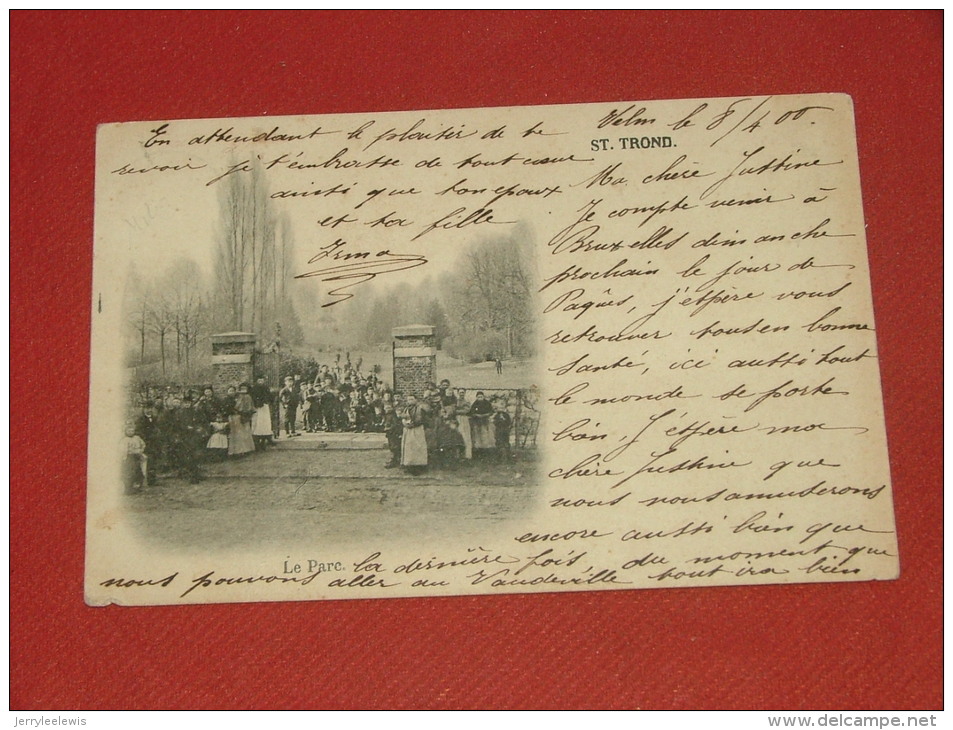 Velm le 8/4 00.
ST. TROND.
Ma chère Justine
Je compte venir à
Bruxelles dimanche
prochain le jour de
Paques, j'espère vous
retrouver tous en bonne
santé, ici aussi tout
le monde se porte
bien, J'espère ma
chère Justine que
nous nous amuserons
encore aussi bien que
la dernière fois du moment que
nous pouvons aller au Vaudeville tout ira bien
En attendant le plaisir de te
revoir je t'embrasse de tout cœur
ainsi que ton epoux
et ta fille
Irma
Le Parc.
jerryleelewis
www.delcampe.net